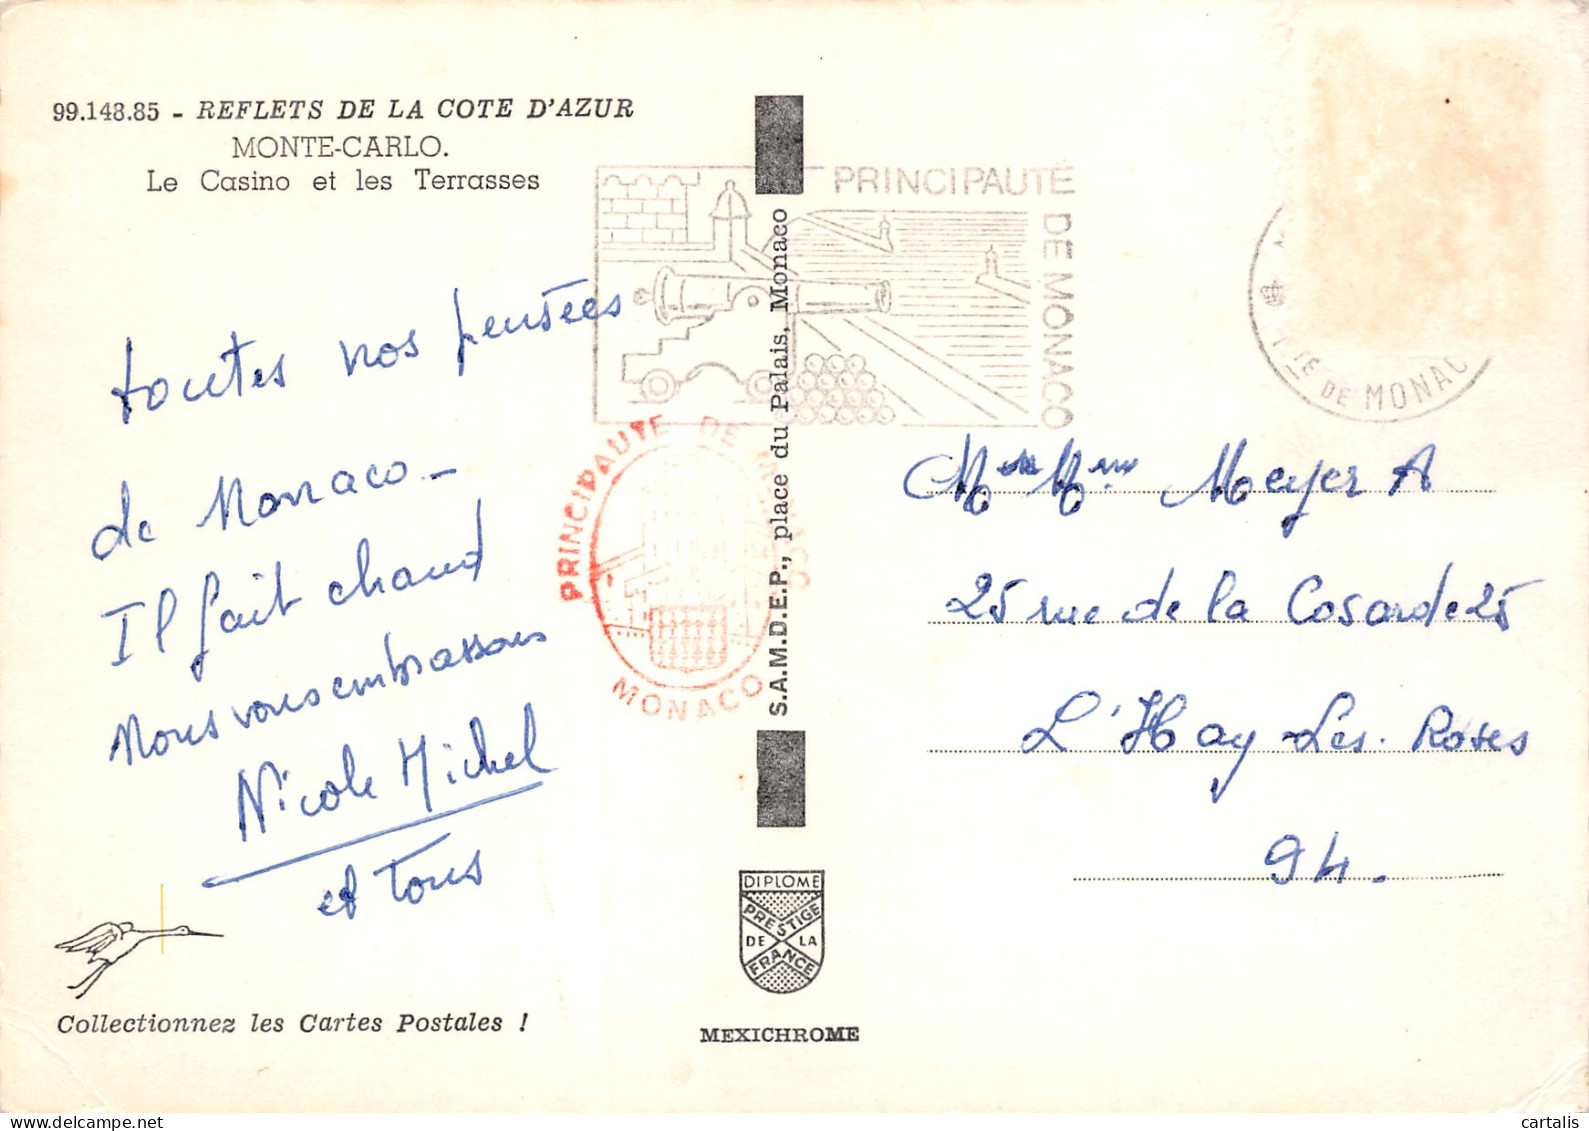 99.148.85 - REFLETS DE LA COTE D'AZUR
MONTE-CARLO.
Le Casino et les Terrasses
toutes nos pensées
de Monaco -
Il fait chaud
Nous vous embrassons
Nicole Michel
et Tous
Collectionnez les Cartes Postales !
PRINCIPAUTÉ
DE MONACO
PRINCIPAUTE DE
MONACO
S.A.M.D.E.P., place du Palais, Monaco
DIPLOME
PRESTIGE
DE LA
FRANCE
MEXICHROME
DE MONAC
Meyer A
25 rue de la Cosarde 25
L'Hay-Les-Roses
94.
delcampe.net
cartalis